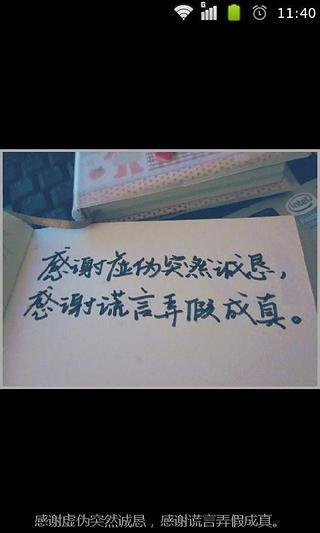 11:40
intel
感谢虚伪突然诚恳，
感谢谎言弄假成真。
感谢虚伪突然诚恳，感谢谎言弄假成真。